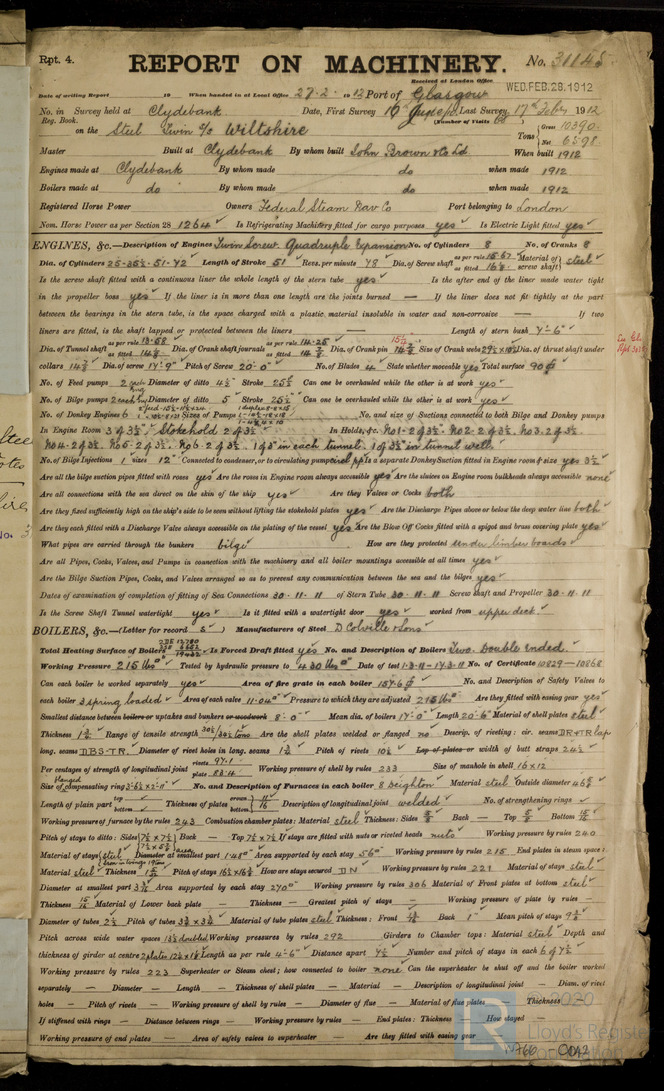 Rpt. 4.
REPORT ON MACHINERY.
No. 31145
Received at London Office
WED. FEB. 28. 1912
Date of writing Report 19 When handed in at Local Office 27.2. 1912 Port of Glasgow
No. in Survey held at Clydebank Date, First Survey 16th Last Survey 17th Feby 1912
Reg. Book. (Number of Visits
on the Steel Twin S/S Wiltshire Tons Gross 10390. Net 6598
Master Built at Clydebank By whom built John Brown & Co Ld. When built 1912
Engines made at Clydebank By whom made do when made 1912
Boilers made at do By whom made do when made 1912
Registered Horse Power Owners Federal Steam Nav Co Port belonging to London
Nom. Horse Power as per Section 28 1264 Is Refrigerating Machinery fitted for cargo purposes yes Is Electric Light fitted yes
ENGINES, &c.—Description of Engines Twin Screw. Quadruple Expansion No. of Cylinders 8 No. of Cranks 8
Dia. of Cylinders 25-35½-51-72 Length of Stroke 51 Revs. per minute 78 Dia. of Screw shaft as per rule 15.67 as fitted 16⅞ Material of screw shaft steel
Is the screw shaft fitted with a continuous liner the whole length of the stern tube yes Is the after end of the liner made water tight
in the propeller boss yes If the liner is in more than one length are the joints burned — If the liner does not fit tightly at the part
between the bearings in the stern tube, is the space charged with a plastic material insoluble in water and non-corrosive — If two
liners are fitted, is the shaft lapped or protected between the liners — Length of stern bush 7'-6"
Dia. of Tunnel shaft as per rule 13.58 as fitted Dia. of Crank shaft journals as per rule 14.25 as fitted 14⅞ Dia. of Crank pin Size of Crank webs Dia. of thrust shaft under
collars 14⅞ Dia. of screw 17'-9" Pitch of Screw 20'-0" No. of Blades 4 State whether moveable yes Total surface 90
No. of Feed pumps 2 each Diameter of ditto 4½ Stroke 25½ Can one be overhauled while the other is at work yes
No. of Bilge pumps 2 each Diameter of ditto 5 Stroke 25½ Can one be overhauled while the other is at work yes
No. of Donkey Engines 6 Sizes of Pumps No. and size of Suctions connected to both Bilge and Donkey pumps
In Engine Room 3 of 3½. Stokehold 2 of 3½ In Holds, &c. No1-2 of 3½. No2-2 of 3½. No3.2 of 3½
No4-2 of 3½. No5-2 of 3½. No6-2 of 3½. 1 of 3" in each tunnel. 1 of 3½ in tunnel well
No. of Bilge Injections 1 sizes 12" Connected to condenser, or to circulating pump Is a separate Donkey Suction fitted in Engine room & size yes 3½
Are all the bilge suction pipes fitted with roses yes Are the roses in Engine room always accessible yes Are the sluices on Engine room bulkheads always accessible none
Are all connections with the sea direct on the skin of the ship yes Are they Valves or Cocks both
Are they fixed sufficiently high on the ship's side to be seen without lifting the stokehold plates yes Are the Discharge Pipes above or below the deep water line both
Are they each fitted with a Discharge Valve always accessible on the plating of the vessel yes Are the Blow Off Cocks fitted with a spigot and brass covering plate yes
What pipes are carried through the bunkers bilge How are they protected under limber boards
Are all Pipes, Cocks, Valves, and Pumps in connection with the machinery and all boiler mountings accessible at all times yes
Are the Bilge Suction Pipes, Cocks, and Valves arranged so as to prevent any communication between the sea and the bilges yes
Dates of examination of completion of fitting of Sea Connections 30.11.11 of Stern Tube 30.11.11 Screw shaft and Propeller 30.11.11
Is the Screw Shaft Tunnel watertight yes Is it fitted with a watertight door yes worked from upper deck.
BOILERS, &c.—(Letter for record S) Manufacturers of Steel D Colville & Sons
Total Heating Surface of Boilers Is Forced Draft fitted yes No. and Description of Boilers Two. Double ended.
Working Pressure 215 lbs Tested by hydraulic pressure to 430 lbs Date of test 1.3.11-17.3.11 No. of Certificate 10829-10865
Can each boiler be worked separately yes Area of fire grate in each boiler 157.6 No. and Description of Safety Valves to
each boiler 3 spring loaded Area of each valve 11.04 Pressure to which they are adjusted 215 lbs Are they fitted with easing gear yes
Smallest distance between boilers or uptakes and bunkers or woodwork 8'-0" Mean dia. of boilers 17'-0" Length 20'-6" Material of shell plates steel
Thickness Range of tensile strength Are the shell plates welded or flanged no Descrip. of riveting: cir. seams DR & TR lap
long. seams DBS-TR. Diameter of rivet holes in long. seams Pitch of rivets 10½ Lap of plates or width of butt straps 24½
Per centages of strength of longitudinal joint rivets 97.1 plate 83.4 Working pressure of shell by rules 233 Size of manhole in shell 16 x 12
Size of compensating ring flanged No. and Description of Furnaces in each boiler 8 Deighton Material steel Outside diameter
Length of plain part top bottom Thickness of plates crown bottom Description of longitudinal joint welded No. of strengthening rings
Working pressure of furnace by the rules 243 Combustion chamber plates: Material steel Thickness: Sides Back — Top Bottom
Pitch of stays to ditto: Sides 7½ x 7½ Back — Top 7½ x 7½ If stays are fitted with nuts or riveted heads nuts Working pressure by rules 240
Material of stays steel Diameter at smallest part area 1.48 Area supported by each stay 56 Working pressure by rules 215 End plates in steam space:
Material steel Thickness Pitch of stays 16½ x 16½ How are stays secured DN Working pressure by rules 221 Material of stays steel
Diameter at smallest part Area supported by each stay 270 Working pressure by rules 306 Material of Front plates at bottom steel
Thickness Material of Lower back plate — Thickness — Greatest pitch of stays — Working pressure of plate by rules —
Diameter of tubes 2½ Pitch of tubes Material of tube plates steel Thickness: Front Back 1" Mean pitch of stays
Pitch across wide water spaces 13½ doubled Working pressures by rules 292 Girders to Chamber tops: Material steel Depth and
thickness of girder at centre Length as per rule 4'-6" Distance apart 7½ Number and pitch of stays in each 6 of 7½
Working pressure by rules 223 Superheater or Steam chest; how connected to boiler none Can the superheater be shut off and the boiler worked
separately — Diameter — Length — Thickness of shell plates — Material — Description of longitudinal joint — Diam. of rivet
holes — Pitch of rivets — Working pressure of shell by rules — Diameter of flue — Material of flue plates Thickness
If stiffened with rings — Distance between rings — Working pressure by rules — End plates: Thickness How stayed —
Working pressure of end plates — Area of safety valves to superheater — Are they fitted with easing gear
© 2020
Lloyd's Register
Foundation
W766 0042